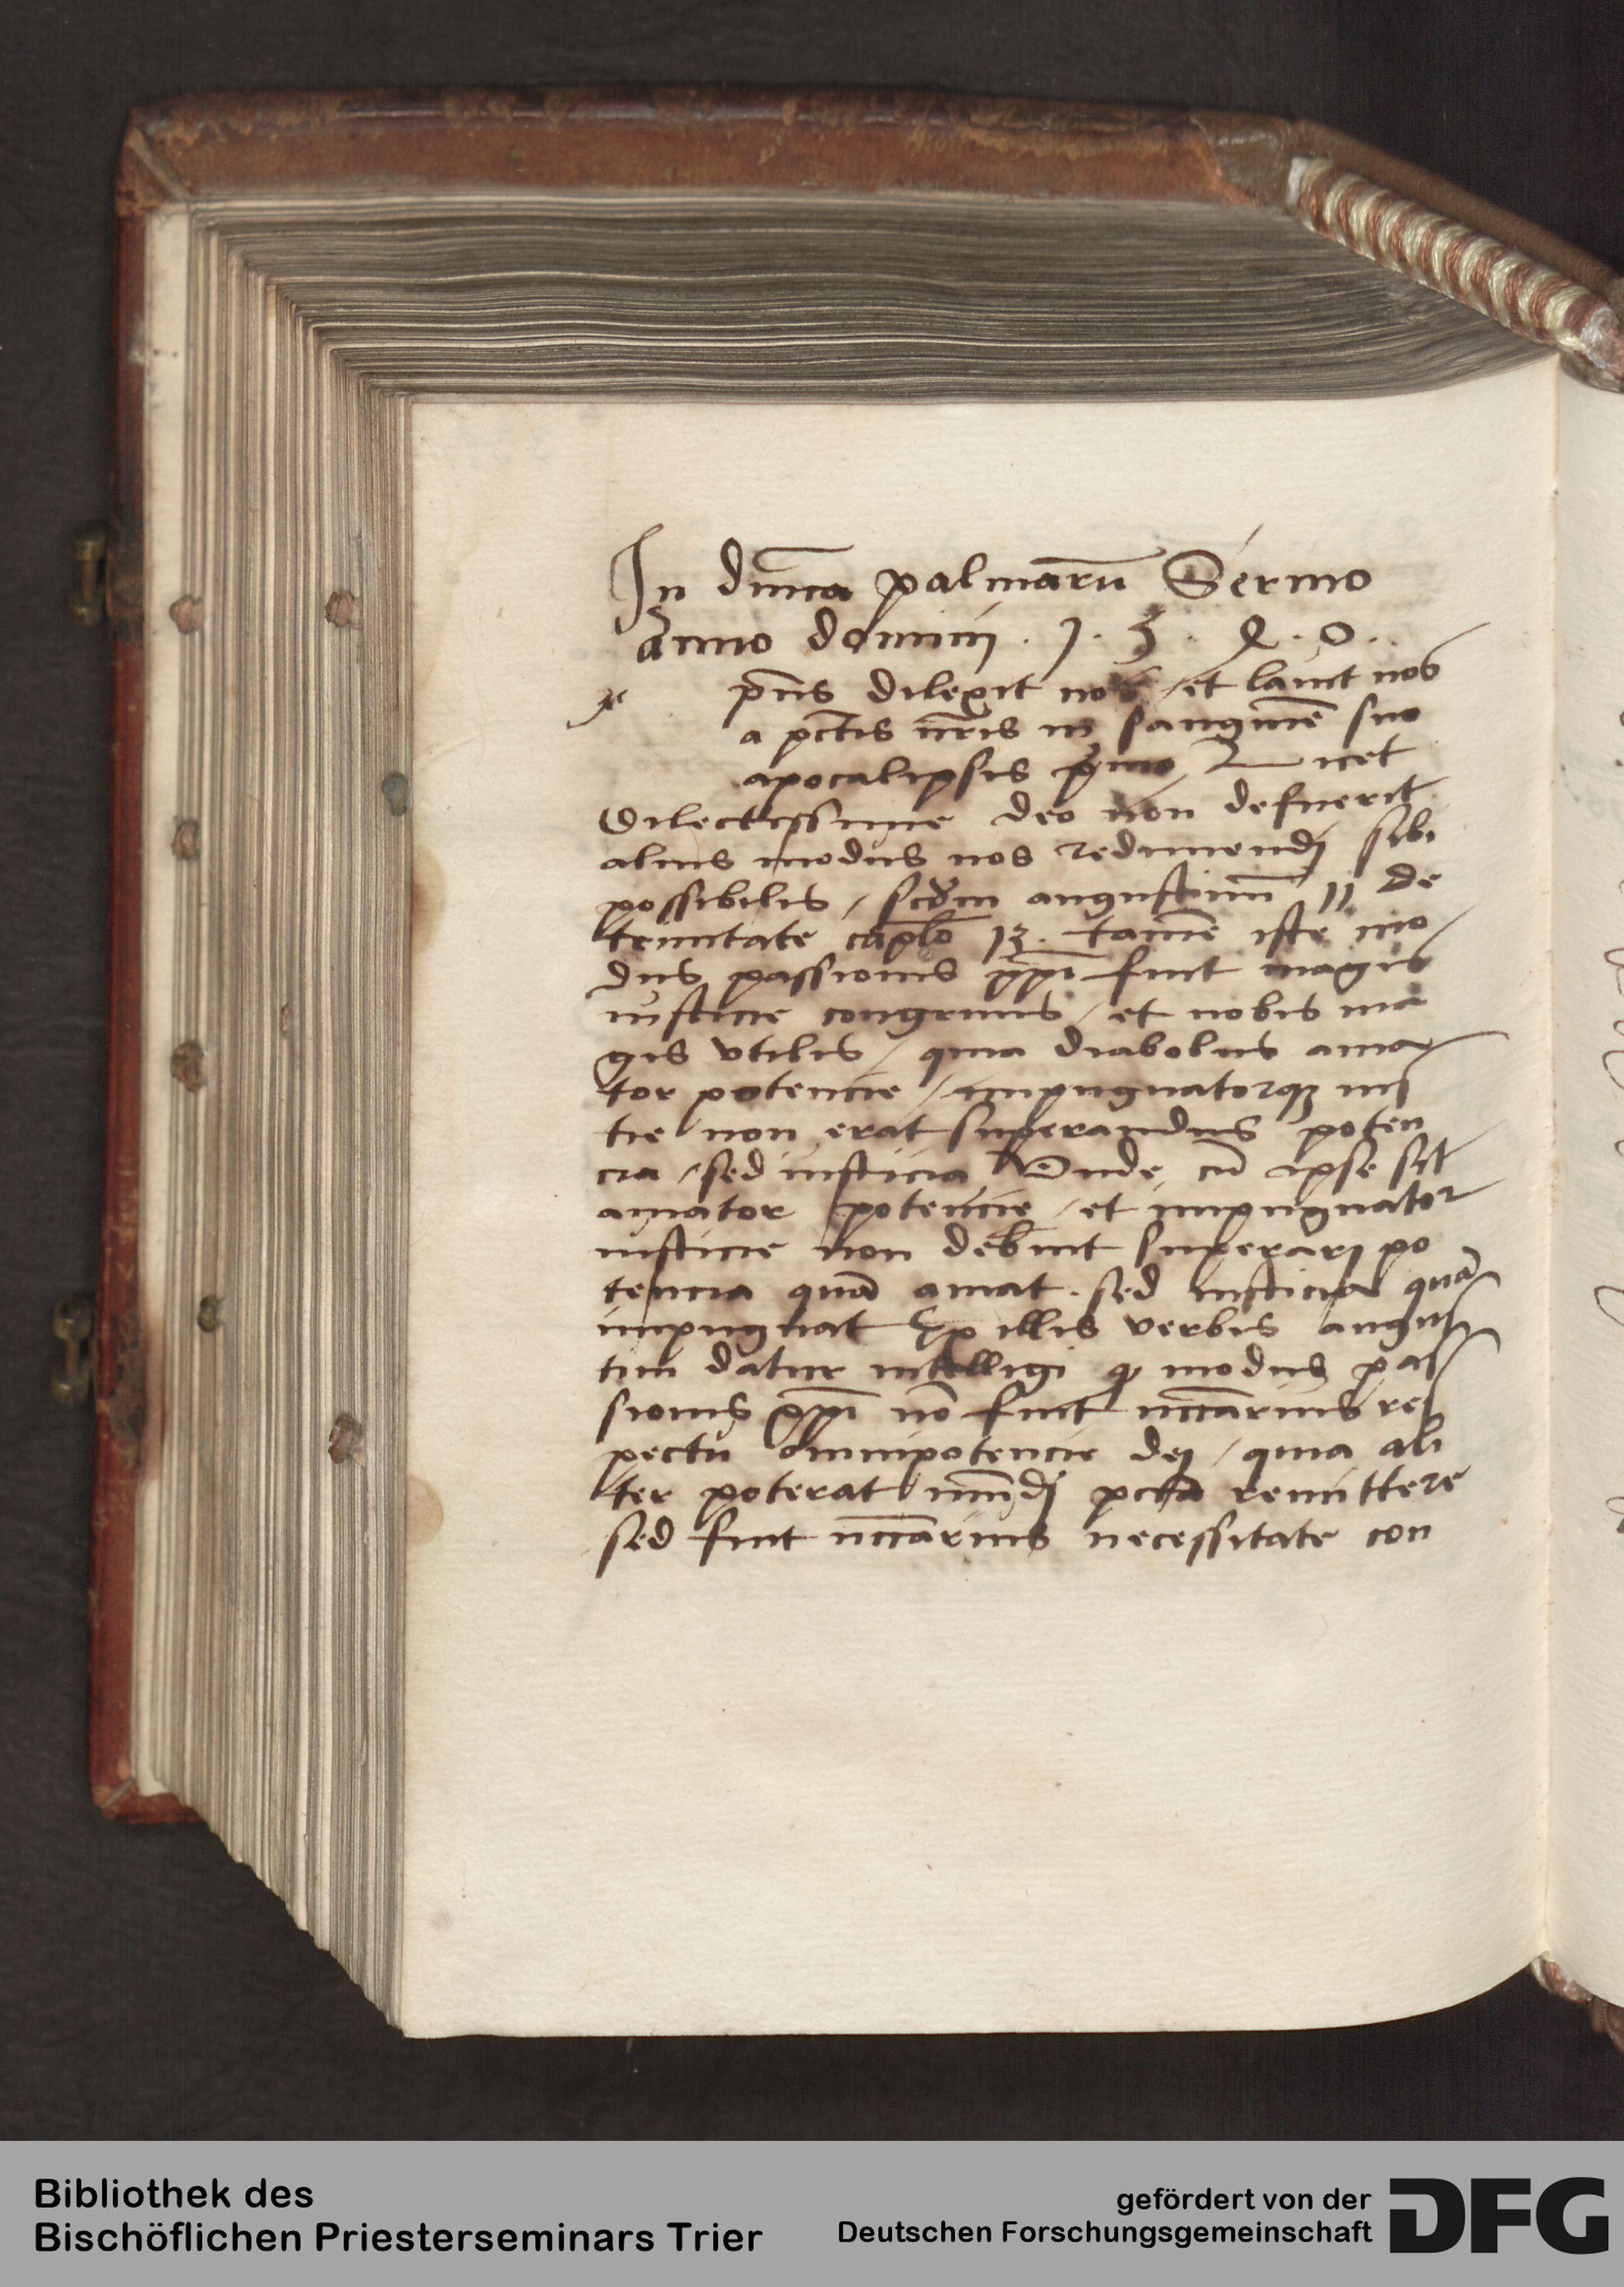 In dn̄ica palmarū Sermo
Anno domini . 1 . 5 . Q . 0 .
xp̄us dilexit nos / et lauit nos
a pctīs nr̄is in sanguinē suo
apocalipsis pᵒmo Licet
Dilectissime deo non defuerit
alius modus nos redimendj sibi
possibilis / scd̄m augustinū 13 de
trinitate cap̄lo 13. tamē iste mo
dus passionis xp̄i fuit magis
iusticie congruus / et nobis ma
gis vtilis / quia diabolus ama
tor potencie / impugnatorqꝫ ius
tie non erat superandus poten
cia / sed iusticia Vnde cū ipse sit
amator potencie / et impugnator
iusticie non debuit superarj po
tencia quā amat . sed iusticia quā
impugnat Ex illis verbis augus
tini datur intelligi ꝙ modus pas
sionis xp̄i nō fuit nccārius res
pectu omnipotencie dej / quia ali
ter poterat mūdj pctā remittere
sed fuit nccārius necessitate con
Bibliothek des
Bischöflichen Priesterseminars Trier
gefördert von der
Deutschen Forschungsgemeinschaft
DFG